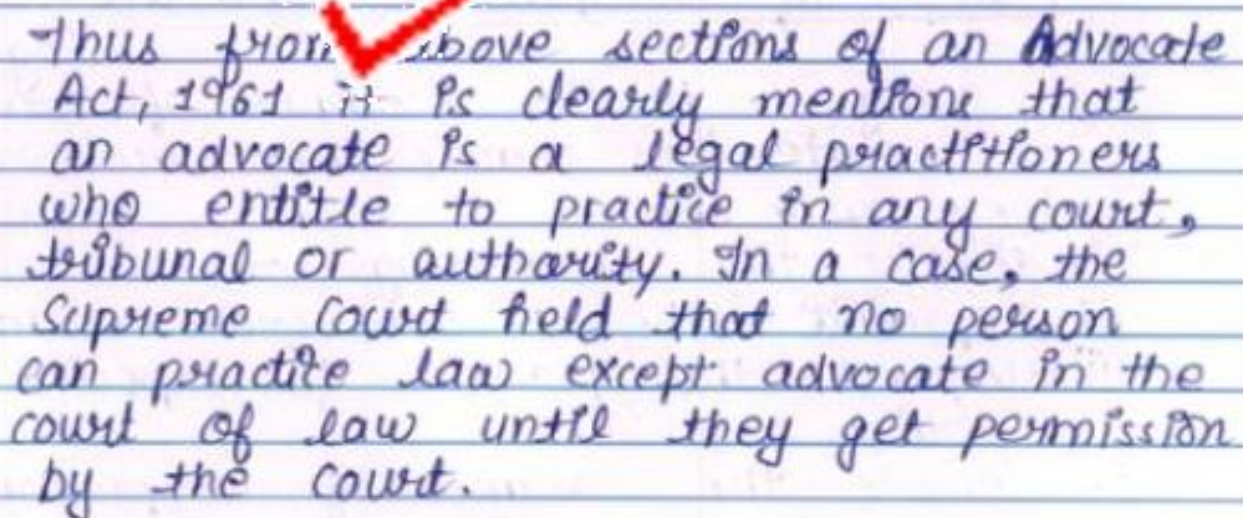 Thus from above sections of an Advocate
Act, 1961 it is clearly mentions that
an advocate is a legal practitioners
who entitle to practice in any court,
tribunal or authority. In a case, the
Supreme Court held that no person
can practice law except advocate in the
court of law until they get permission
by the court.